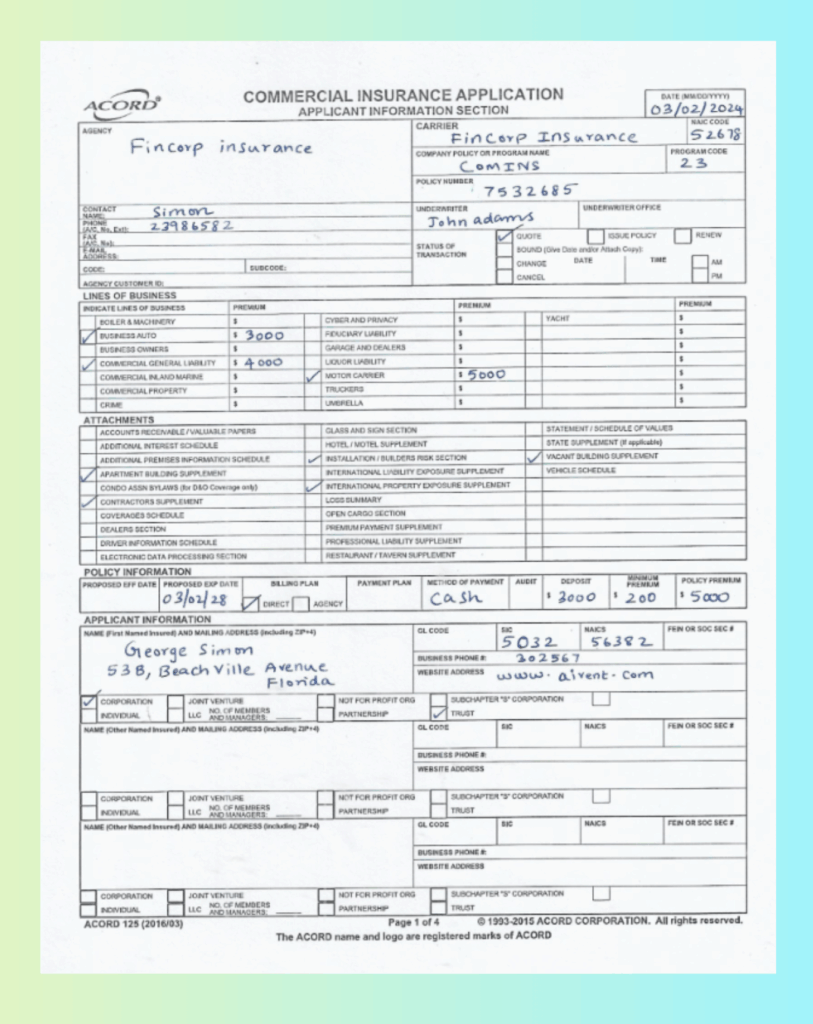 ACORD®
COMMERCIAL INSURANCE APPLICATION
APPLICANT INFORMATION SECTION
DATE (MM/DD/YYYY)
03/02/2024
AGENCY
Fincorp insurance
CARRIER
FinCorp Insurance
NAIC CODE
52678
COMPANY POLICY OR PROGRAM NAME
COMINS
PROGRAM CODE
23
POLICY NUMBER
7532685
CONTACT NAME: Simon
PHONE (A/C, No, Ext): 23986582
FAX (A/C, No):
E-MAIL ADDRESS:
CODE: SUBCODE:
AGENCY CUSTOMER ID:
UNDERWRITER
John adams
UNDERWRITER OFFICE
STATUS OF TRANSACTION
QUOTE ISSUE POLICY RENEW
BOUND (Give Date and/or Attach Copy):
CHANGE DATE TIME AM
CANCEL PM
LINES OF BUSINESS
INDICATE LINES OF BUSINESS PREMIUM PREMIUM PREMIUM
BOILER & MACHINERY $ CYBER AND PRIVACY $ YACHT $
BUSINESS AUTO $ 3000 FIDUCIARY LIABILITY $ $
BUSINESS OWNERS $ GARAGE AND DEALERS $ $
COMMERCIAL GENERAL LIABILITY $ 4000 LIQUOR LIABILITY $ $
COMMERCIAL INLAND MARINE $ MOTOR CARRIER $ 5000 $
COMMERCIAL PROPERTY $ TRUCKERS $ $
CRIME $ UMBRELLA $ $
ATTACHMENTS
ACCOUNTS RECEIVABLE / VALUABLE PAPERS GLASS AND SIGN SECTION STATEMENT / SCHEDULE OF VALUES
ADDITIONAL INTEREST SCHEDULE HOTEL / MOTEL SUPPLEMENT STATE SUPPLEMENT (If applicable)
ADDITIONAL PREMISES INFORMATION SCHEDULE INSTALLATION / BUILDERS RISK SECTION VACANT BUILDING SUPPLEMENT
APARTMENT BUILDING SUPPLEMENT INTERNATIONAL LIABILITY EXPOSURE SUPPLEMENT VEHICLE SCHEDULE
CONDO ASSN BYLAWS (for D&O Coverage only) INTERNATIONAL PROPERTY EXPOSURE SUPPLEMENT
CONTRACTORS SUPPLEMENT LOSS SUMMARY
COVERAGES SCHEDULE OPEN CARGO SECTION
DEALERS SECTION PREMIUM PAYMENT SUPPLEMENT
DRIVER INFORMATION SCHEDULE PROFESSIONAL LIABILITY SUPPLEMENT
ELECTRONIC DATA PROCESSING SECTION RESTAURANT / TAVERN SUPPLEMENT
POLICY INFORMATION
PROPOSED EFF DATE PROPOSED EXP DATE BILLING PLAN PAYMENT PLAN METHOD OF PAYMENT AUDIT DEPOSIT MINIMUM PREMIUM POLICY PREMIUM
03/02/28 DIRECT AGENCY Cash $ 3000 $ 200 $ 5000
APPLICANT INFORMATION
NAME (First Named Insured) AND MAILING ADDRESS (including ZIP+4)
George Simon
53B, Beach Ville Avenue
Florida
GL CODE SIC NAICS FEIN OR SOC SEC #
5032 56382
BUSINESS PHONE #: 302567
WEBSITE ADDRESS
www.aivent.com
CORPORATION JOINT VENTURE NOT FOR PROFIT ORG SUBCHAPTER "S" CORPORATION
INDIVIDUAL LLC NO. OF MEMBERS AND MANAGERS: PARTNERSHIP TRUST
NAME (Other Named Insured) AND MAILING ADDRESS (including ZIP+4)
GL CODE SIC NAICS FEIN OR SOC SEC #
BUSINESS PHONE #:
WEBSITE ADDRESS
CORPORATION JOINT VENTURE NOT FOR PROFIT ORG SUBCHAPTER "S" CORPORATION
INDIVIDUAL LLC NO. OF MEMBERS AND MANAGERS: PARTNERSHIP TRUST
NAME (Other Named Insured) AND MAILING ADDRESS (including ZIP+4)
GL CODE SIC NAICS FEIN OR SOC SEC #
BUSINESS PHONE #:
WEBSITE ADDRESS
CORPORATION JOINT VENTURE NOT FOR PROFIT ORG SUBCHAPTER "S" CORPORATION
INDIVIDUAL LLC NO. OF MEMBERS AND MANAGERS: PARTNERSHIP TRUST
ACORD 125 (2016/03) Page 1 of 4 © 1993-2015 ACORD CORPORATION. All rights reserved.
The ACORD name and logo are registered marks of ACORD